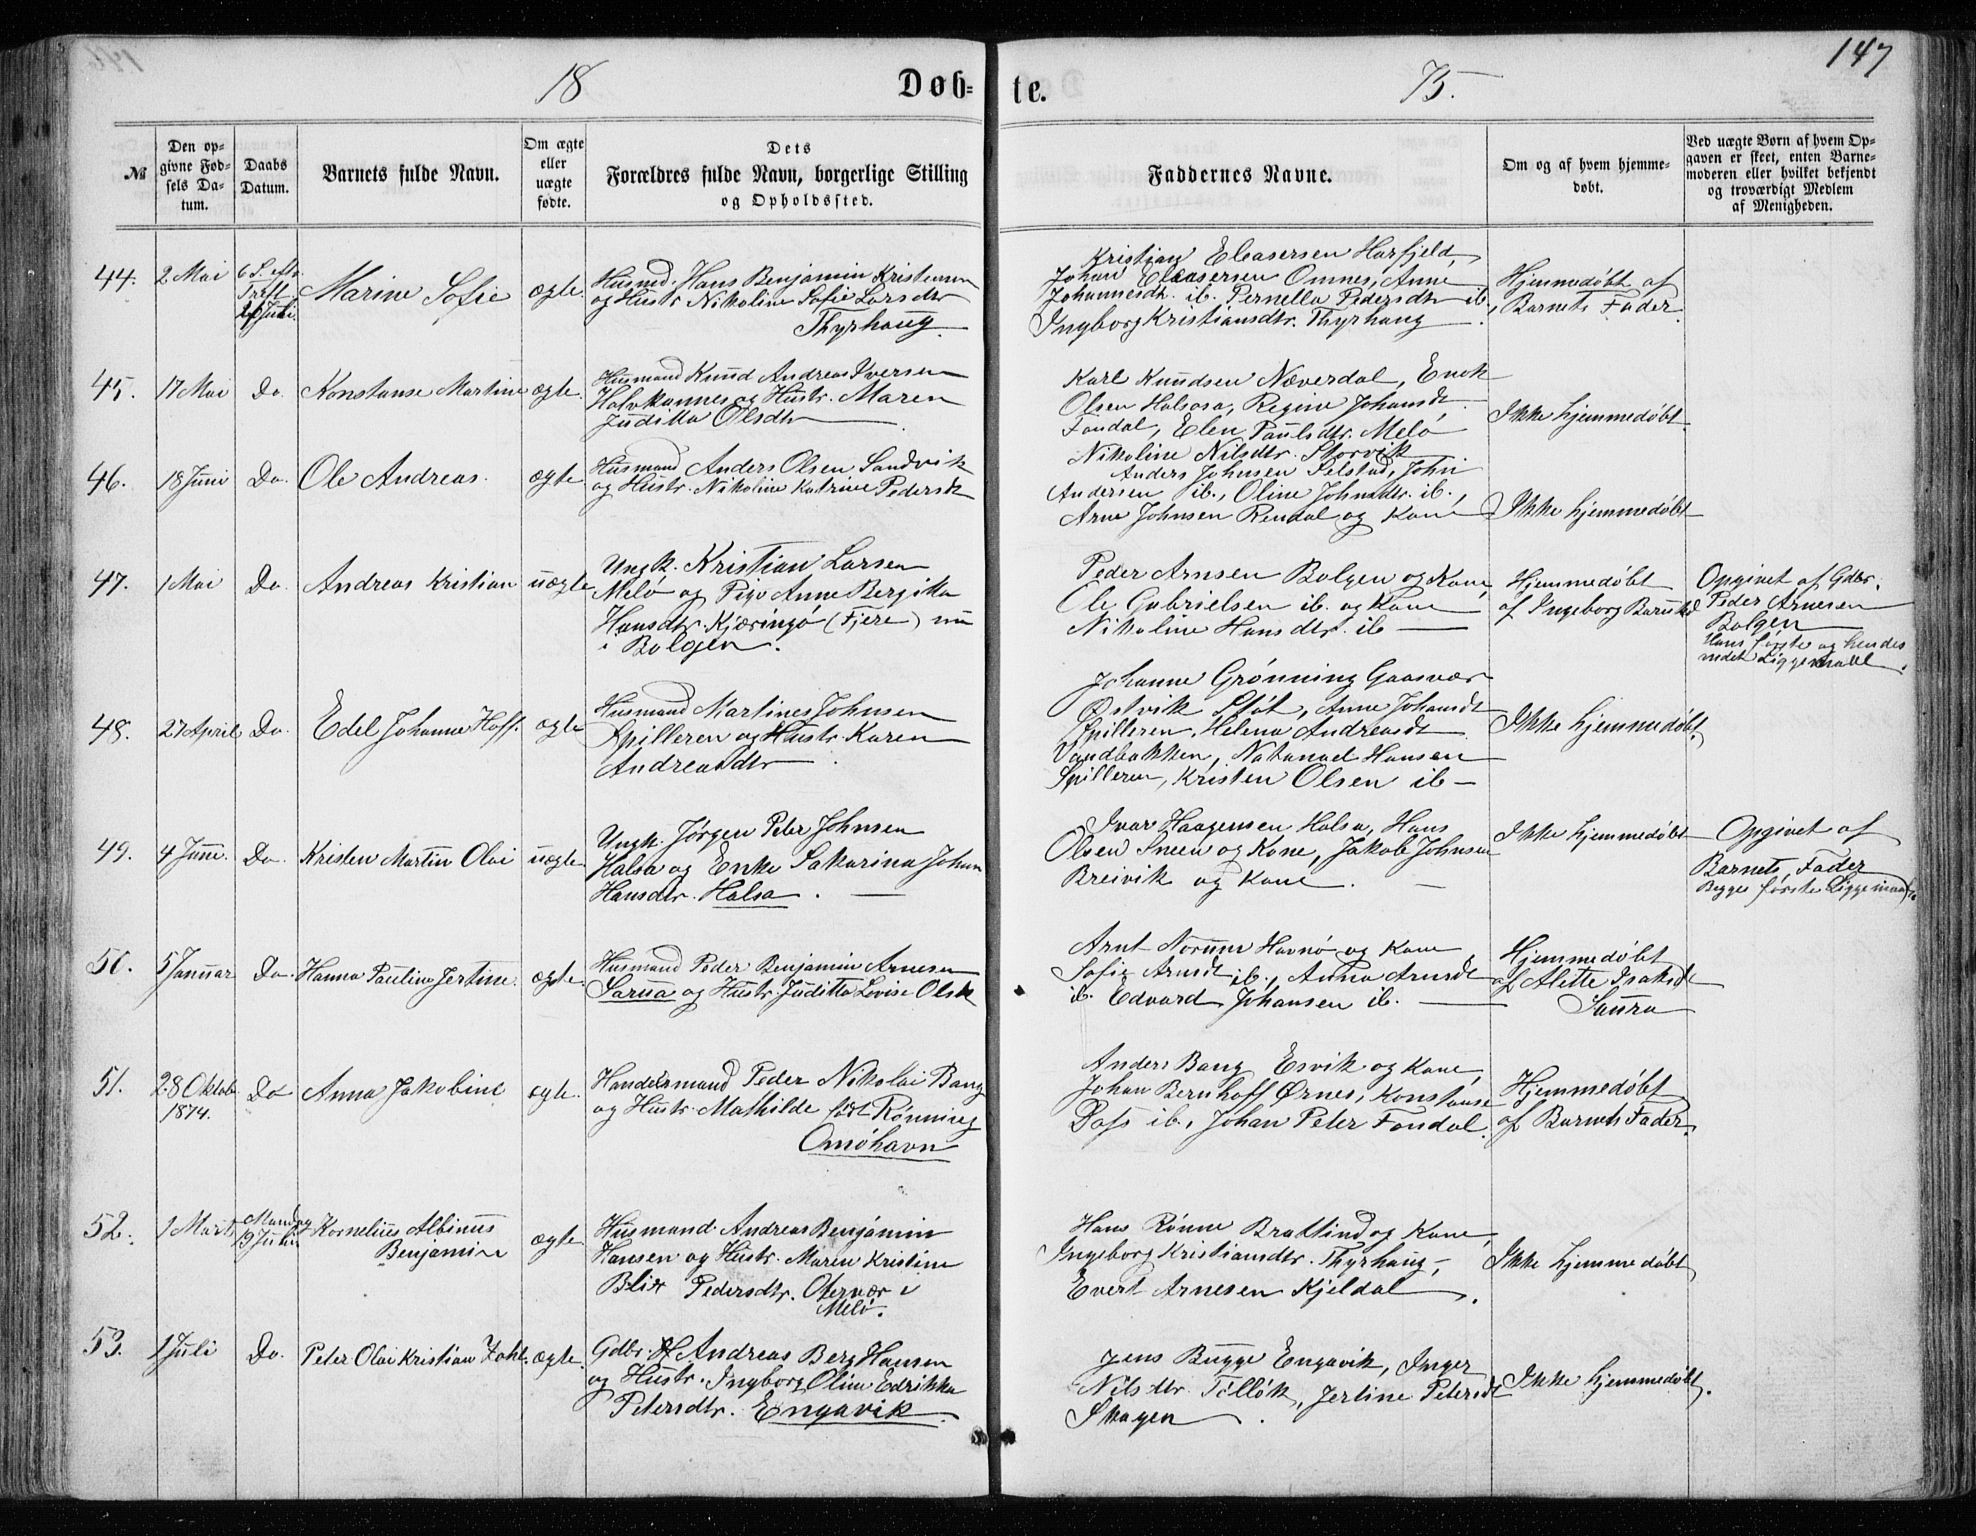 147
18 Døb- te. 75.
№
Den opgivne Fødsels Datum.
Daabs Datum.
Barnets fulde Navn.
Om ægte eller uægte fødte.
Dets Forældres fulde Navn, borgerlige Stilling og Opholdssted.
Faddernes Navne.
Om og af hvem hjemmedøbt.
Ved uægte Børn af hvem Opgaven er skeet, enten Barnemoderen eller hvilket bekjendt og troværdigt Medlem af Menigheden.
44. 2 Mai 6 S. eftr. Treft. Juli. Marine Sofie ægte.
Husmd. Hans Benjamin Kristensen
og Hustr. Nikoline Sofie Larsdtr
Thyrhaug.
Kristian Eleasersen Harfjeld,
Johan Eleasersen Omnes, Anne
Johannesdtr. ib. Pernella Pedersdtr ib.,
Ingborg Kristiansdtr. Thyrhaug
Hjemmedøbt af
Barnets Fader.
45. 17 Mai Do. Konstanse Martine ægte.
Husmand Knud Andreas Iversen
Halvkannes og Hustr. Maren
Juditta Olsdtr
Karl Knudsen Næverdal, Enok
Olsen Halsosa, Regine Johansdt.
Fondal, Elen Paulsdtr. Melø
Nikoline Nilsdtr. Storvik
Ikke hjemmedøbt.
46. 18 Juni Do. Ole Andreas. ægte
Husmand Anders Olsen Sandvik
og Hustr. Nikoline Katrine Pedersdt
Anders Johnsen Selstad, John
Andersen ib., Oline Johnsdtr. ib.,
Arne Johnsen Rendal og Kone
Ikke hjemmedøbt
47. 1 Mai Do. Andreas Kristian uægte
Ungk. Kristian Larsen
Melø og Pige Anne Bergitta
Hansdtr. Kjæringø (Fjere) nu
i Bolgen.
Peder Arnsen Bolgen og Kone,
Ole Gabrielsen ib. og Kone
Nikoline Hansdtr. ib
Hjemmedøbt
af Ingeborg
Opgivet af Gdbr.
Peder Arnesen
Bolgen
Hans første og hendes
Liggermaal.
48. 27 April Do. Edel Johanne Hoff. ægte
Husmand Martines Johnsen
Spilleren og Hustr. Karen
Andreasdtr
Johanne Grønning Gaasvær
Østvik Støt, Anne Johansdt
Spilleren, Helena Andreasdt
Vandbakken, Natanael Hansen
Spilleren, Kristen Olsen ib
Ikke hjemmedøbt.
49. 4 Juni. Do. Kristen Martin Olai uægte.
Ungk. Jørgen Peter Johnsen
Halsa og Enke Sakarina Johan
Hansdtr. Halsa.
Ivar Haagensen Halsa, Hans
Olsen Sneen og Kone, Jakob Johnsen
Breivik og Kone.
Ikke hjemmedøbt
Opgivet af
Barnets Fader
Begges første Liggermaal.
50. 5 Januar Do. Hanna Pauline Jertine. ægte.
Husmand Peder Benjamin Arnesen
Sarua og Hustr. Juditta Lovise Olsdt
Arnt Norum Havnø og Kone
Sofie Arnsdt ib., Anna Arnsdt
ib. Edvard Johansen ib.
Hjemmedøbt
af Alette Isaksdt
Saura
51. 28 Oktob. 1874. Do Anna Jakobine ægte.
Handelsmand Peder Nikolai Bang
og Hustr. Mathilde født Rønning
Omøhavn
Anders Bang Esvik og Kone,
Johan Bernhoff Ørnes, Konstanse
Dass ib., Johan Peter Fondal.
Hjemmedøbt
af Barnets Fader.
52. 1 Marts Mandag 19 Juli Kornelius Albinus Benjamin ægte
Husmand. Andreas Benjamin
Hansen og Hustr. Maren Kristine
Blix Pedersdtr. Oternær i
Melø.
Hans Rønne Brattind og Kone,
Ingeborg Kristiansdtr. Thyrhaug,
Evert Arnesen Kjeldal.
Ikke hjemmedøbt
53. 1 Juli Do. Peter Olai Kristian Zahl. ægte.
Gdbr. Andreas Berg Hansen
og Hustr. Ingborg Oline Edrikka
Petersdtr. Engavik.
Jens Bugge Engavik, Inger
Nilsdtr. Telløk, Jertine Petersdt
Skagen.
Ikke hjemmedøbt.